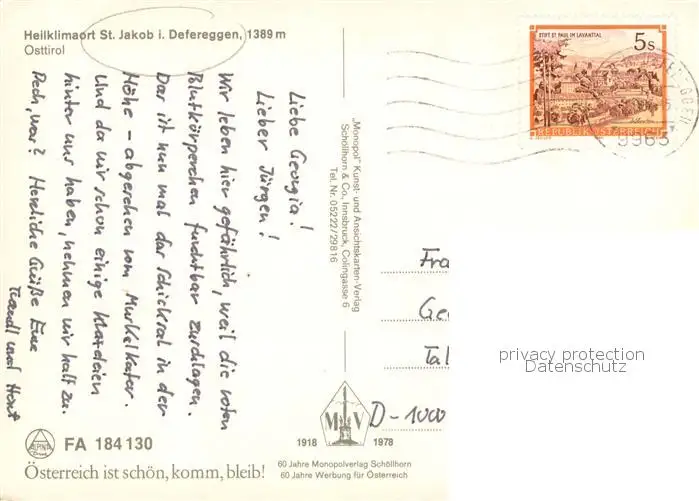 Heilklimaort St. Jakob i. Defereggen, 1389 m
Osttirol
Liebe Georgia!
Lieber Jürgen!
Wir leben hier gefährlich, weil die roten
Blutkörperchen furchtbar zuschlagen.
Das ist nun mal das Schicksal in der
Höhe – abgesehen vom Muskelkater.
Und da wir schon einige Klettereien
hinter uns haben, nehmen wir halt zu.
Pech, was? Herzliche Grüße Eure
Traudl und Horst
"Monopol" Kunst- und Ansichtskarten-Verlag
Schöllhorn & Co., Innsbruck, Colingasse 6
Tel. Nr. 05222/29816
STIFT ST. PAUL IM LAVANTTAL
5 s
REPUBLIK ÖSTERREICH
9963
Fra
Ge
Tal
D-1000
privacy protection
Datenschutz
M V
1918
1978
60 Jahre Monopolverlag Schöllhorn
60 Jahre Werbung für Österreich
ALPINA
FA 184 130
Österreich ist schön, komm, bleib!